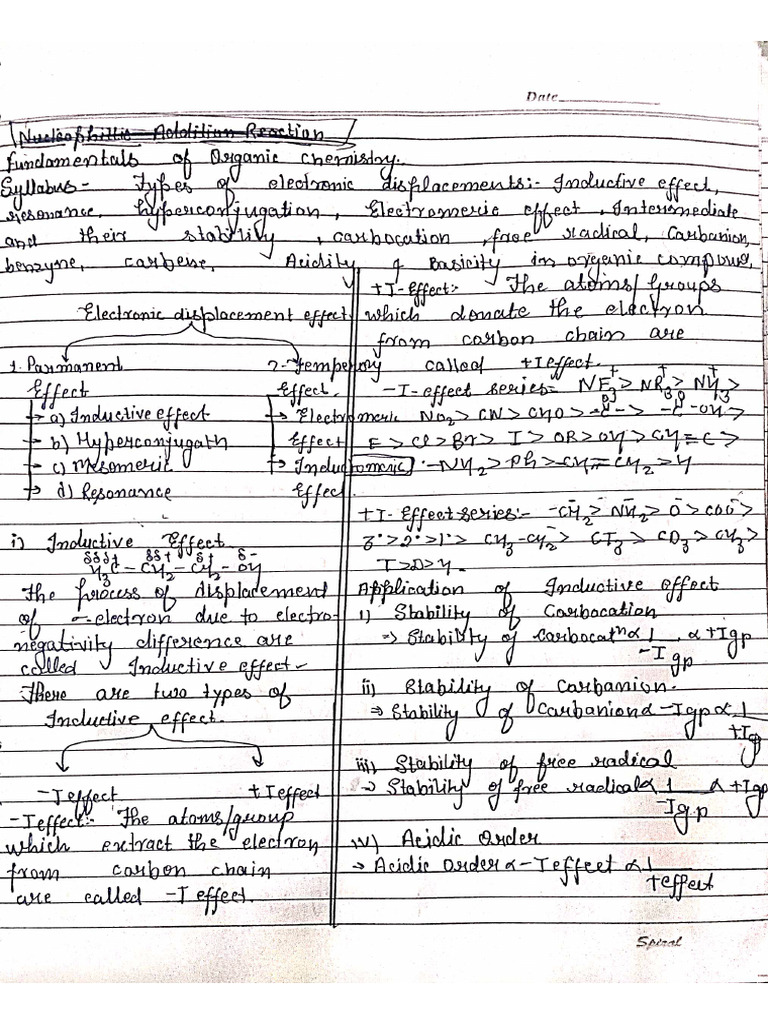 Date
Nucleophillic Addition Reaction
fundamentals of Organic chemistry.
Syllabus - Types of electronic displacements:- Inductive effect,
resonance, hyperconjugation, Electromeric effect, Intermediate
and their stability, carbocation, free radical, Carbanion,
benzyne, carbene, Acidity & Basicity in organic compous,
Electronic displacement effect
1. Parmanent 2. Tempemory
Effect Effect.
a) Inductive effect → Electromeric
b) Hyperconjugatn Effect
c) Mesomeric → Inductromeric
d) Resonance Effect.
i) Inductive Effect
δδδ+ δδ+ δ+ δ-
H3C - CH2 - CH2 - OH
The process of displacement
of σ-electron due to electro-
negativity difference are
called Inductive effect-
There are two types of
Inductive effect.
-I effect +I effect
-I effect:- The atoms/group
which extract the electron
from carbon chain
are called -I effect.
+I-Effect:- The atoms/Groups
which donate the electron
from carbon chain are
called +I effect.
-I-effect series= NF3+ > NR3+ > NH3+ >
NO2 > CN > CHO > > -OH >
F > Cl > Br > I > OR > OH > CH≡C >
-NH2 > Ph > -CH=CH2 > H
+I-Effect series:- -CH2- > NH- > O- > COO- >
3° > 2° > 1° > CH3-CH2 > CT3 > CD3 > CH3 >
T > D > H.
Application of Inductive effect
i) Stability of Carbocation
⇒ Stability of carbocatn α 1/-I gp α +I gp
ii) Stability of Carbanion.
⇒ Stability of Carbanion α -I gp α 1/+I g
iii) Stability of free radical
→ Stability of free radical α 1/-I g.p α +I gp
iv) Acidic Order
→ Acidic Order α -I effect α 1/+effect
Spiral